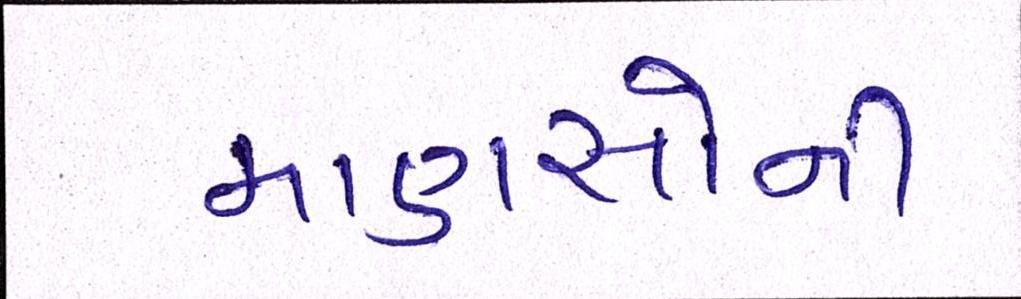 માણસોની